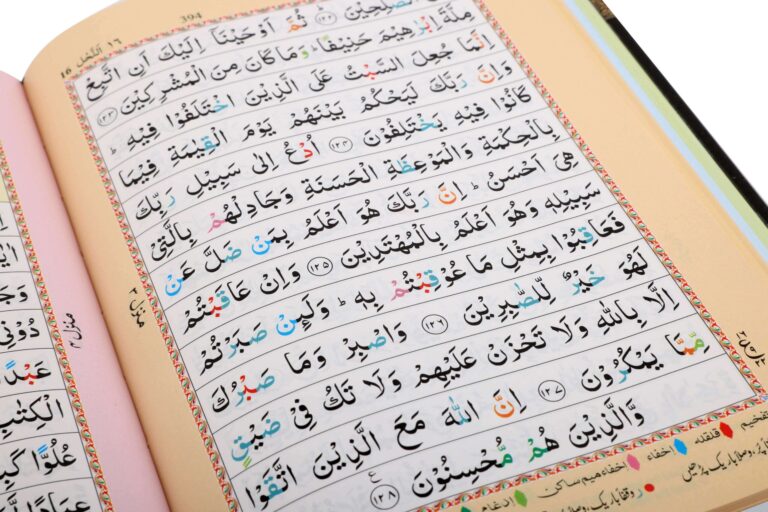 394
النحل ١٦
16
الصّٰلِحِيْنَ ﴿١٢٢﴾ ثُمَّ اَوْحَيْنَاۤ اِلَيْكَ اَنِ اتَّبِعْ
مِلَّةَ اِبْرٰهِيْمَ حَنِيْفًا ؕ وَمَا كَانَ مِنَ الْمُشْرِكِيْنَ ﴿١٢٣﴾
اِنَّمَا جُعِلَ السَّبْتُ عَلَى الَّذِيْنَ اخْتَلَفُوْا فِيْهِ ؕ
وَاِنَّ رَبَّكَ لَيَحْكُمُ بَيْنَهُمْ يَوْمَ الْقِيٰمَةِ فِيْمَا
كَانُوْا فِيْهِ يَخْتَلِفُوْنَ ﴿١٢٤﴾ اُدْعُ اِلٰى سَبِيْلِ رَبِّكَ
بِالْحِكْمَةِ وَالْمَوْعِظَةِ الْحَسَنَةِ وَجَادِلْهُمْ بِالَّتِيْ
هِىَ اَحْسَنُ ؕ اِنَّ رَبَّكَ هُوَ اَعْلَمُ بِمَنْ ضَلَّ عَنْ
سَبِيْلِهٖ وَهُوَ اَعْلَمُ بِالْمُهْتَدِيْنَ ﴿١٢٥﴾ وَاِنْ عَاقَبْتُمْ
فَعَاقِبُوْا بِمِثْلِ مَا عُوْقِبْتُمْ بِهٖ ؕ وَلَئِنْ صَبَرْتُمْ
لَهُوَ خَيْرٌ لِّلصّٰبِرِيْنَ ﴿١٢٦﴾ وَاصْبِرْ وَمَا صَبْرُكَ
اِلَّا بِاللّٰهِ وَلَا تَحْزَنْ عَلَيْهِمْ وَلَا تَكُ فِيْ ضَيْقٍ
مِّمَّا يَمْكُرُوْنَ ﴿١٢٧﴾ اِنَّ اللّٰهَ مَعَ الَّذِيْنَ اتَّقَوْا
وَّالَّذِيْنَ هُمْ مُّحْسِنُوْنَ ﴿١٢٨﴾
منزل ٣
تفخيم قلقله اخفاء اخفاء ميم ساكن ادغام
منزل ٣
دُوْنِيْ
عَبْدًا
الْكِتٰبِ
عُلُوًّا